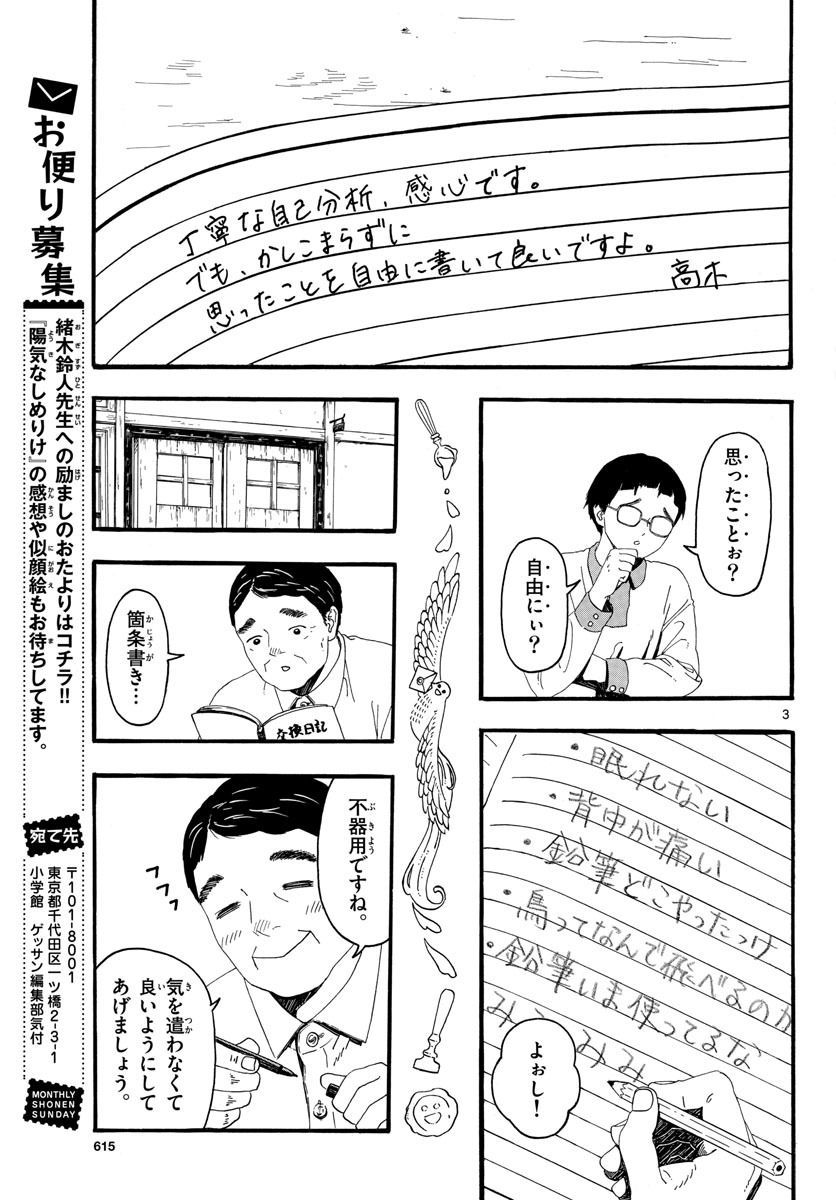 丁寧な自己分析、感心です。
でも、かしこまらずに
思ったことを自由に書いて良いですよ。
高木
思ったことぉ？
自由にぃ？
3
・眠れない
・背中が痛い
・鉛筆どこやったっけ
・鳥ってなんで飛べるのか
・鉛筆いま使ってるな
よぉし！
箇条書き…
かじょうが
交換日記
不器用ですね。
ぶきよう
気を遣わなくて
き つか
良いようにして
い
あげましょう。
615
お便り募集
緒木鈴人先生への励ましのおたよりはコチラ!!
おぎすずひとせんせい はげ
『陽気なしめりけ』の感想や似顔絵もお待ちしてます。
ようき かんそう にがおえ ま
宛て先
〒101-8001
東京都千代田区一ツ橋2-3-1
小学館 ゲッサン編集部気付
MONTHLY
SHONEN
SUNDAY